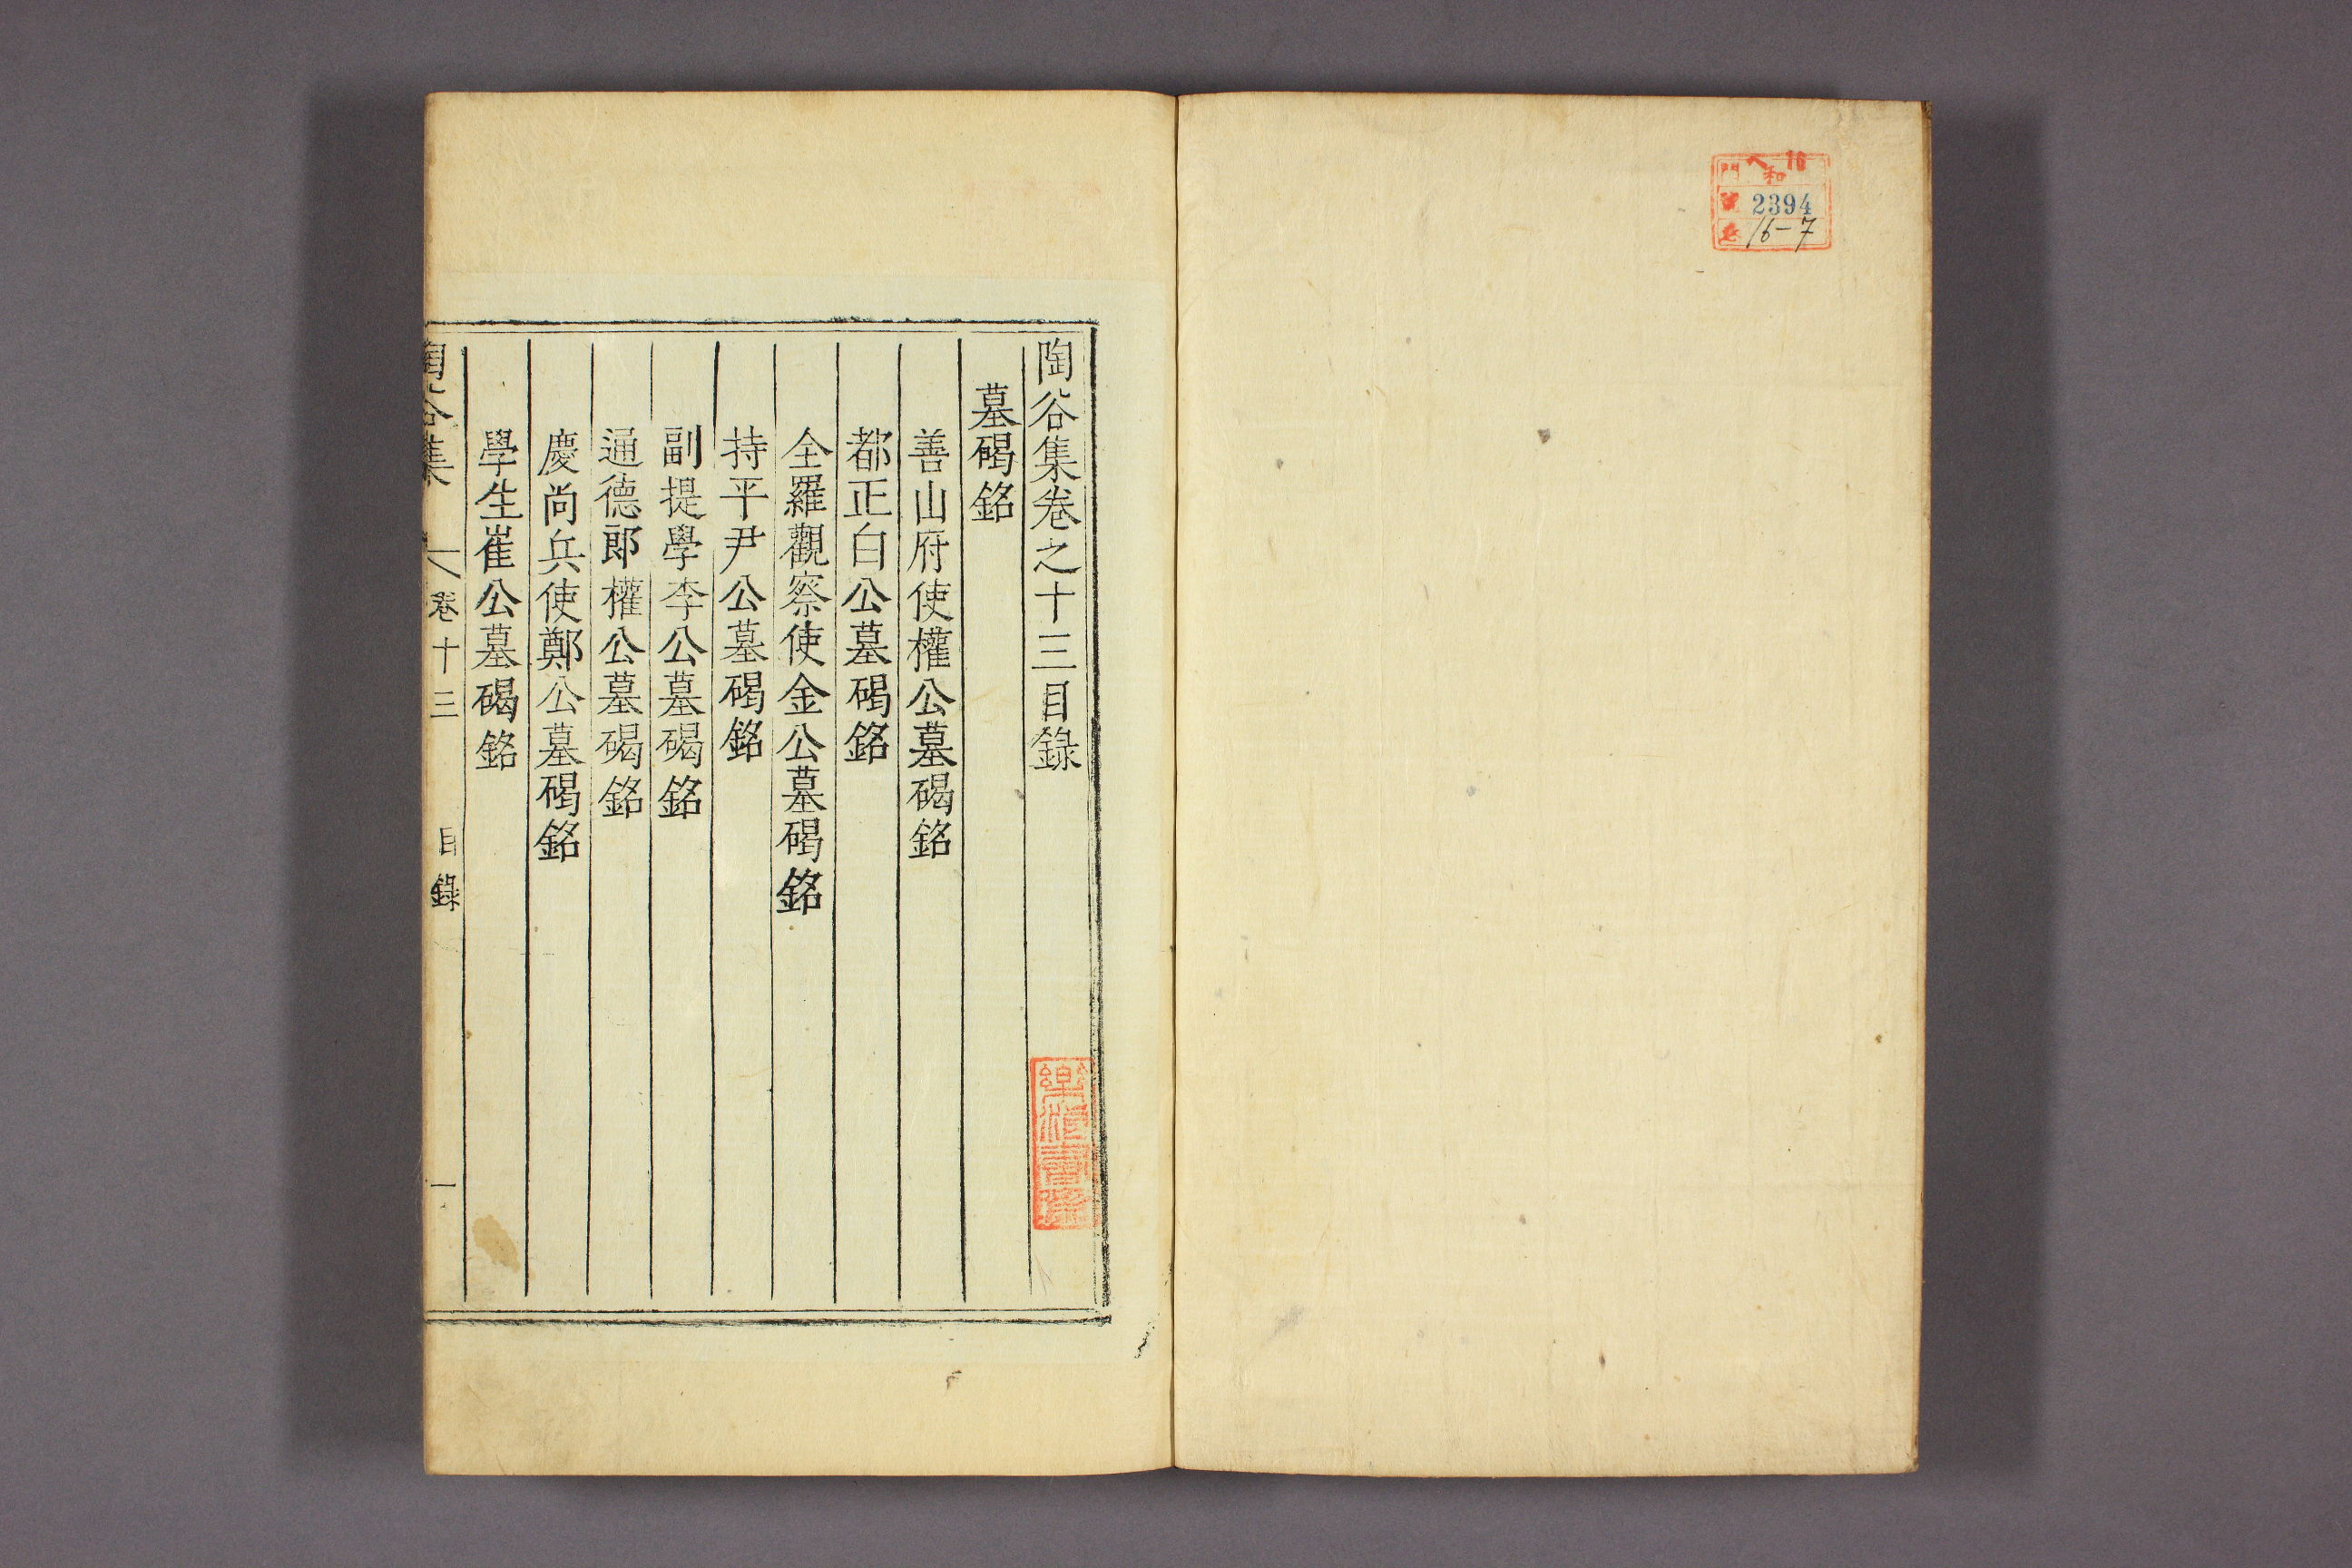 門
和
號 2394
卷 16-7
陶谷集卷之十三目錄
墓碣銘
善山府使權公墓碣銘
都正白公墓碣銘
全羅觀察使金公墓碣銘
持平尹公墓碣銘
副提學李公墓碣銘
通德郎權公墓碣銘
慶尚兵使鄭公墓碣銘
學生崔公墓碣銘
陶谷集 卷十三 目錄 一